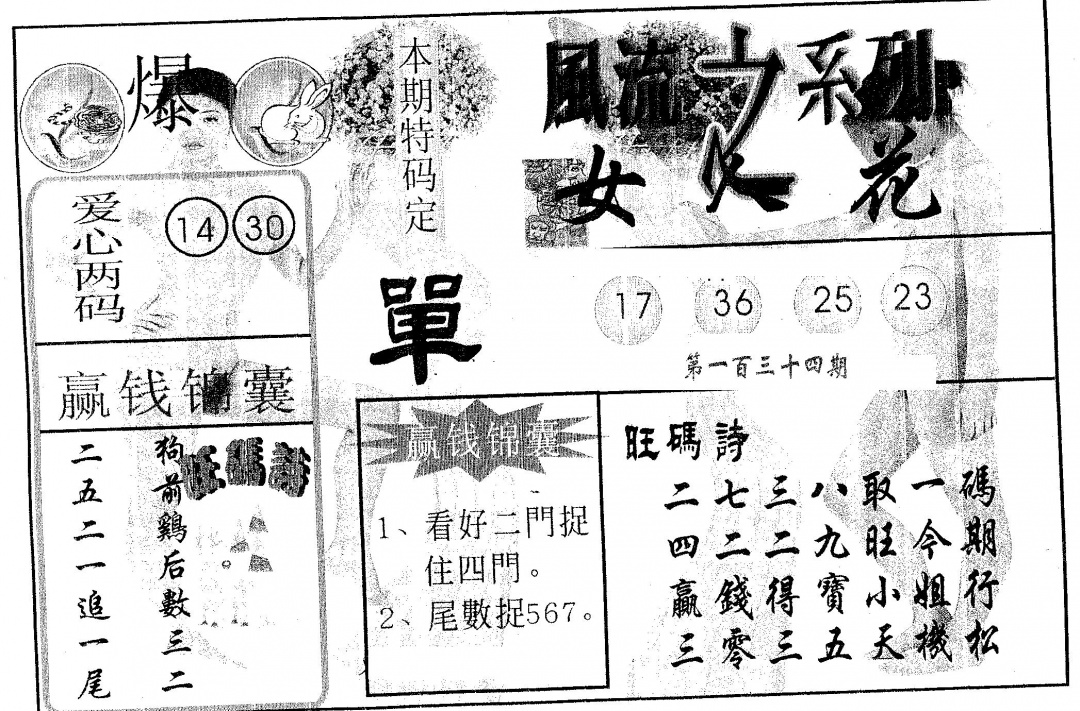 爆
爱心两码
14 30
赢钱锦囊
旺碼詩
狗前鷄后數三二
二五二一追一尾
本期特码定
單
風流之系列
女人花
17 36 25 23
第一百三十四期
赢钱锦囊
1、看好二門捉
住四門。
2、尾數捉567。
旺碼詩
二七三八取一碼
四二二九旺今期
贏錢得寶小姐行
三零三五天機松